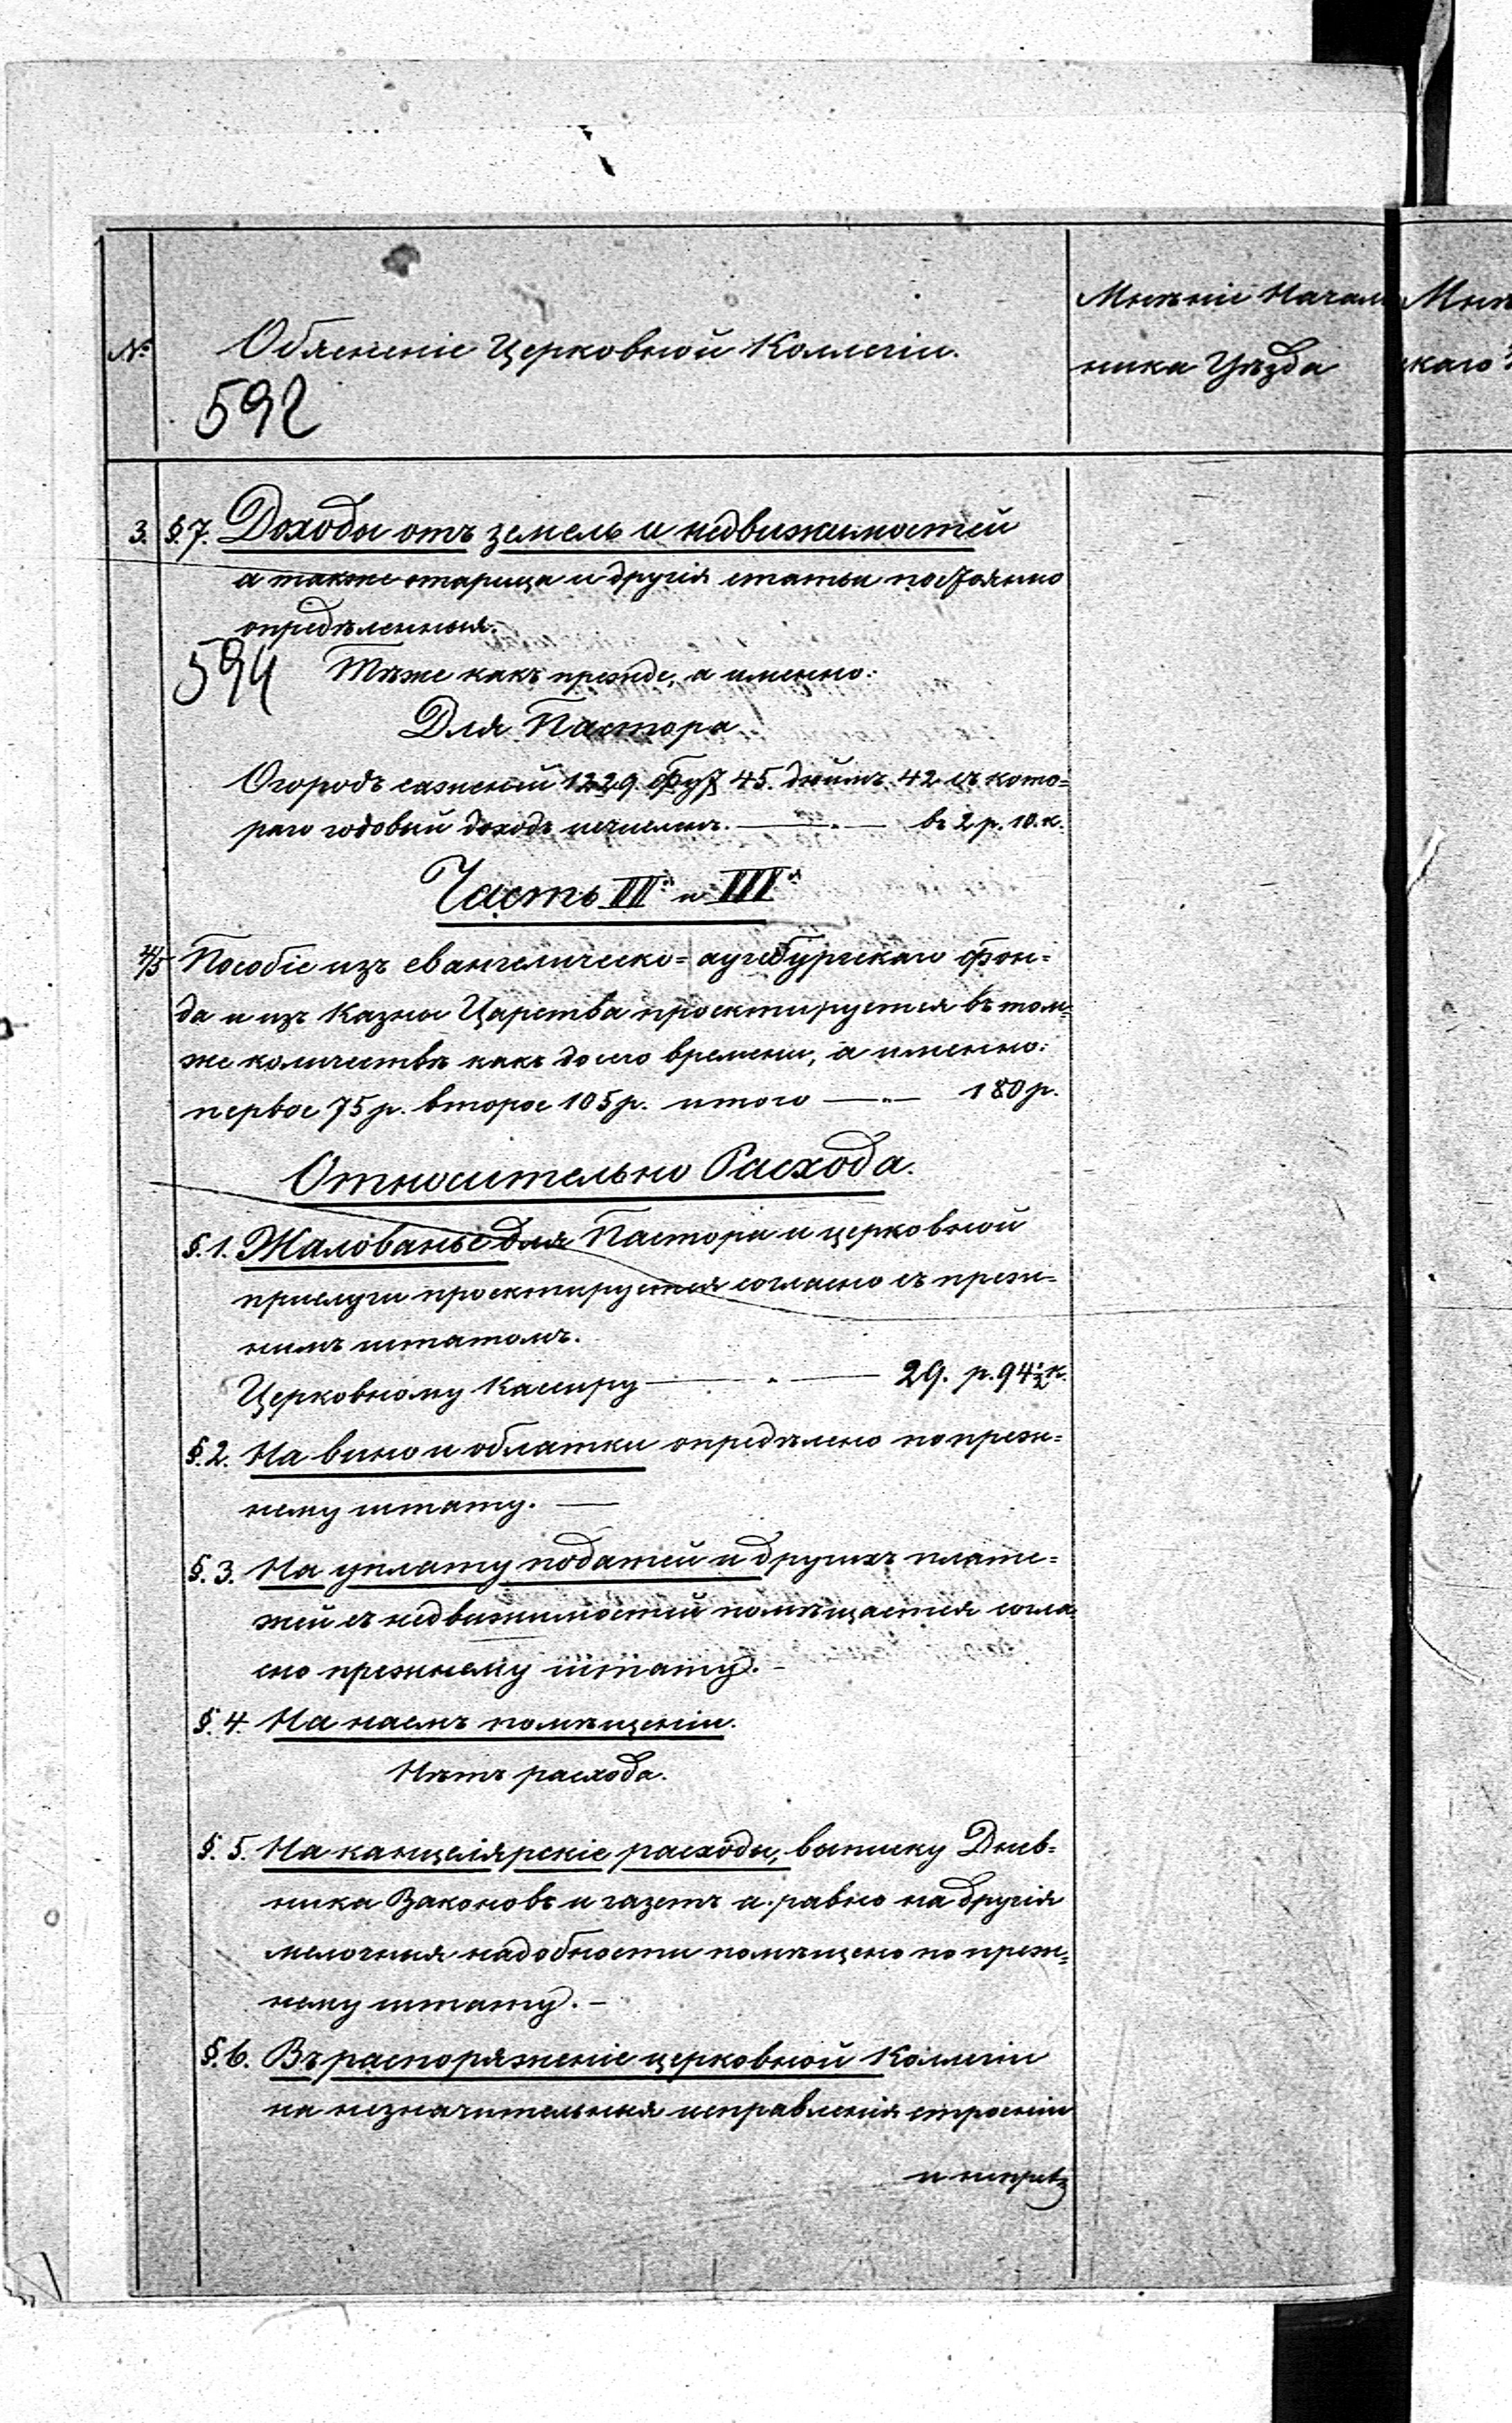 №
Обясненіе Церковной Коллегіи.
592
Мнѣніе Началь
ника Уѣзда
Мнѣ
скаго
3. §. 7. Доходы отъ земель и недвижимостей
а также и другія статьи постоянно
опредѣленныя.
594
Тѣже какъ прежде, а именно:
Для Пастора
Огородъ саженей 1229. фут 45. дюймъ. 42 съ кото=
раго годовый доходъ исчислить. — " — въ 2 р. 10. к.
Часть II.я и III.я
4/5 Пособіе изъ евангелическо=аугсбургскаго фон=
да и изъ Казны Царства проектируется въ томъ=
же количествѣ какъ до сего времени, а именно:
первое 75 р. второе 105 р. итого — " — 180 р.
Относительно Расхода.
§. 1. Жалованье для Пастора и церковной
прислуги проектируется согласно съ преж=
нимъ штатомъ.
Церковному Кассиру — " — 29. р. 94 1/2 к.
§. 2. На вино и облатки опредѣлено по преж=
нему штату. —
§. 3. На уплату податей и другихъ плате=
жей съ недвижимостей помѣщается согла
сно прежнему штату. -
§. 4. На наемъ помѣщеній.
Нѣтъ расхода.
§. 5. На канцелярскіе расходы, выписку Днев=
ника Законовъ и газетъ а равно на другія
мелочныя надобности помѣщено по преж=
нему штату. -
§. 6. Въ распоряженіе церковной Коллегіи
на незначительныя исправленія строеній
и